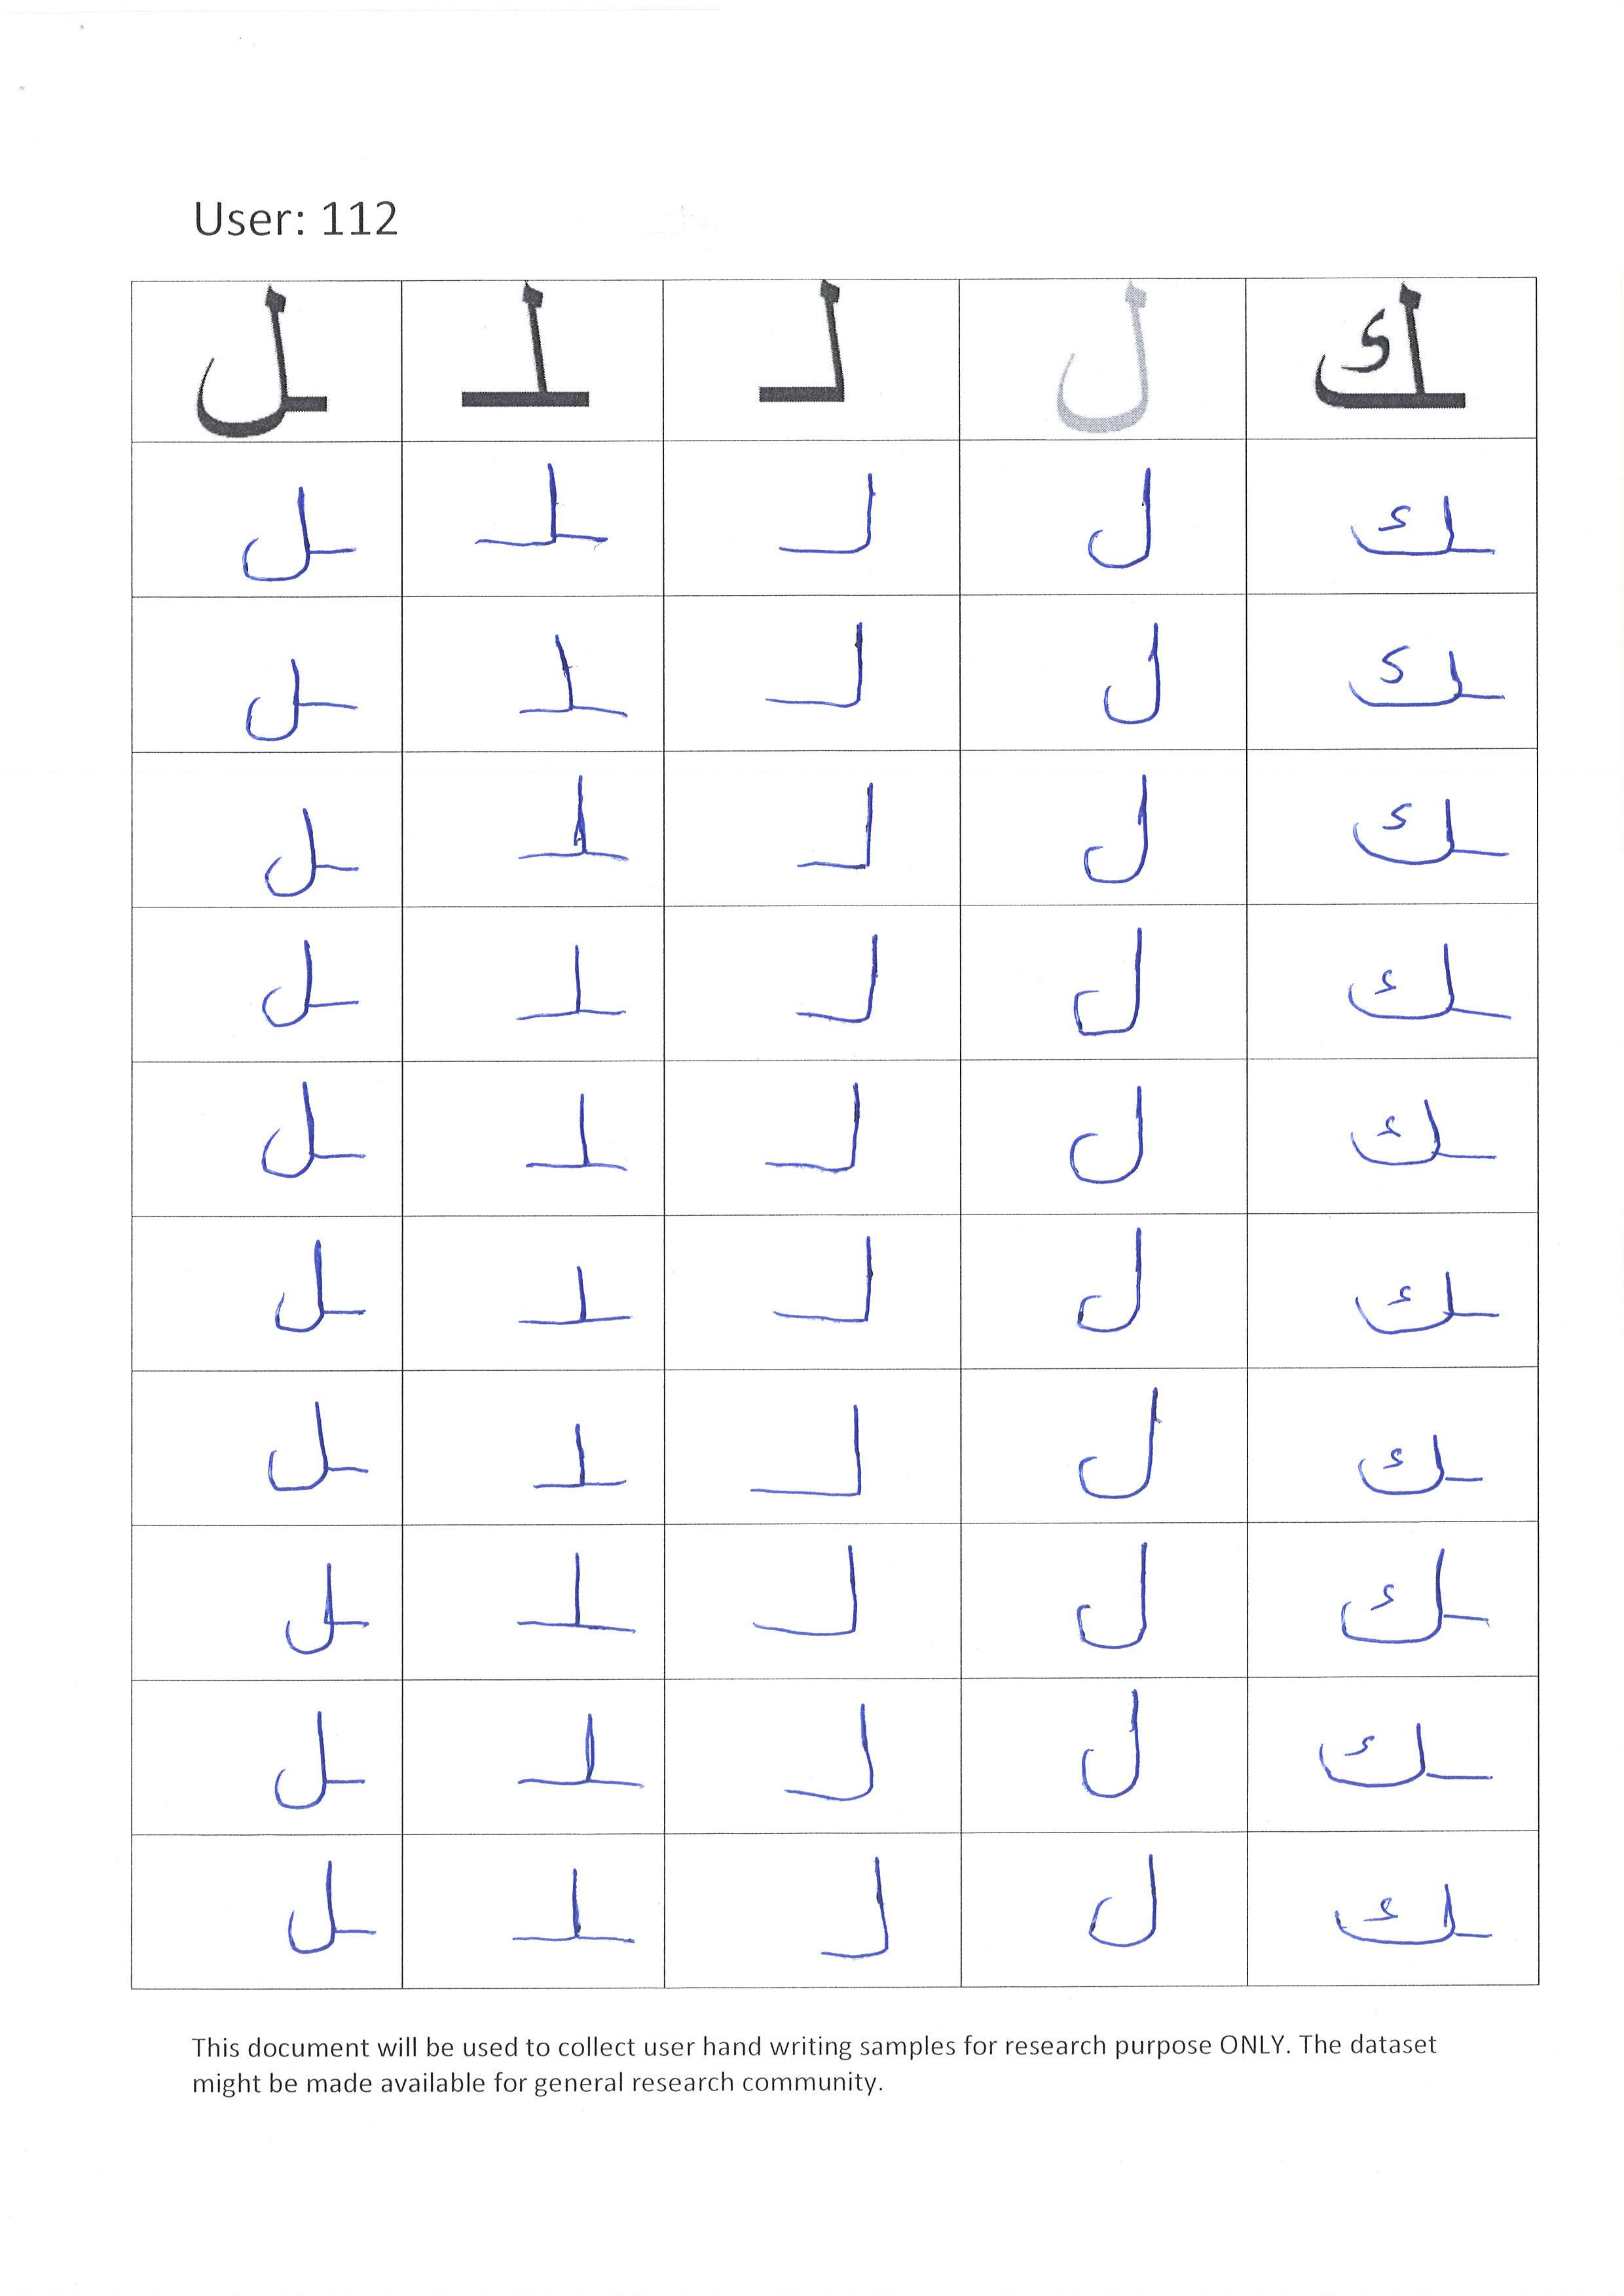 User: 112
ـل ـلـ لـ ل ـك
ـل ـلـ لـ ل ـك
ـل ـلـ لـ ل ـك
ـل ـلـ لـ ل ـك
ـل ـلـ لـ ل ـك
ـل ـلـ لـ ل ـك
ـل ـلـ لـ ل ـك
ـل ـلـ لـ ل ـك
ـل ـلـ لـ ل ـك
ـل ـلـ لـ ل ـك
ـل ـلـ لـ ل ـك
This document will be used to collect user hand writing samples for research purpose ONLY. The dataset
might be made available for general research community.